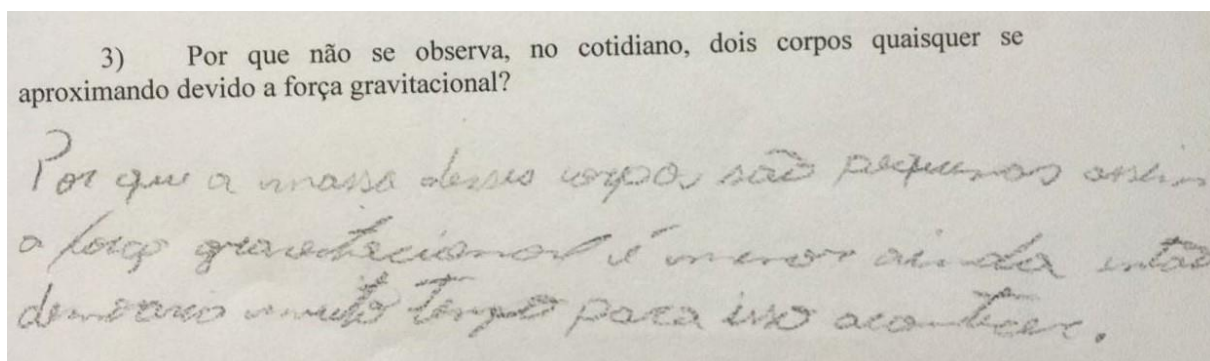 3) Por que não se observa, no cotidiano, dois corpos quaisquer se
aproximando devido a força gravitacional?
Por que a massa desses corpos são pequenas assim
a força gravitacional é menor ainda então
demoraria muito tempo para isso acontecer.